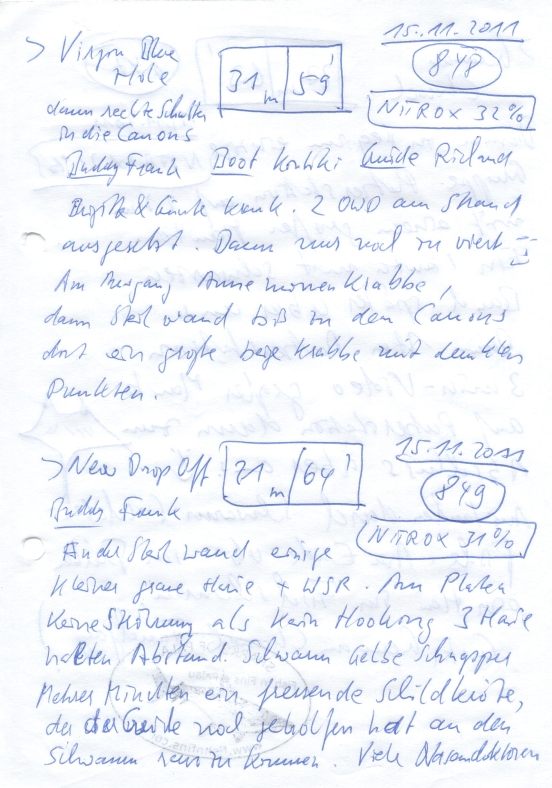 15.11.2011
> Virgin Blue Hole
31m 59'
848
NITROX 32%
dann rechte Schulter
in die Canons
Buddy Frank Boot Guide Richard
Brigitte & krank. 2 OWD am Strand
ausgesetzt. Dann nur noch zu viert
Am Ausgang Annemonenkrabbe,
dann Steilwand bis zu den Canons
dort ein große beige Krabbe mit dunklen
Punkten.
15.11.2011
> New Drop Off
21m 64'
849
Buddy Frank
NITROX 31%
An der Steilwand einige
kleiner graue Haie + WSR. Am Plateau
keine Ströhmung als kein Hooking 3 Haie
hielten Abstand. Schwarm Gelbe Schnapper
Mehrer Minuten ein fressende Schildkröte,
der der Guide noch geholfen hat an den
Schwamm ran zu kommen. Viele Nasendoktoren